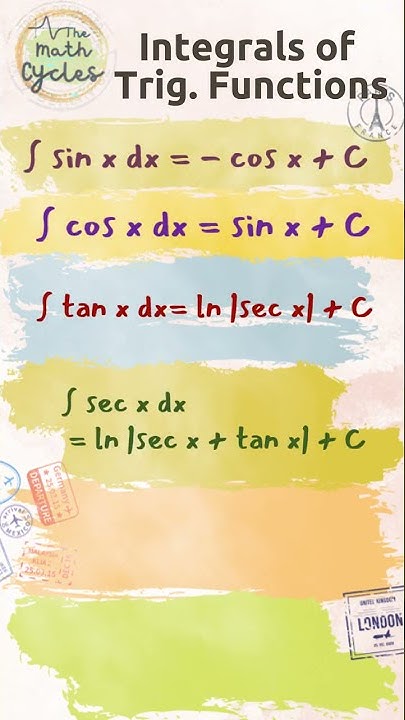 The
Math
Cycles
Integrals of
Trig. Functions
FRANCE
∫ sin x dx = - cos x + C
∫ cos x dx = sin x + C
∫ tan x dx= ln |sec x| + C
∫ sec x dx
= ln |sec x + tan x| + C
Germany
DEPARTURE
arrival
MEXICO
25.03.15
UNITED KINGDOM
LONDON